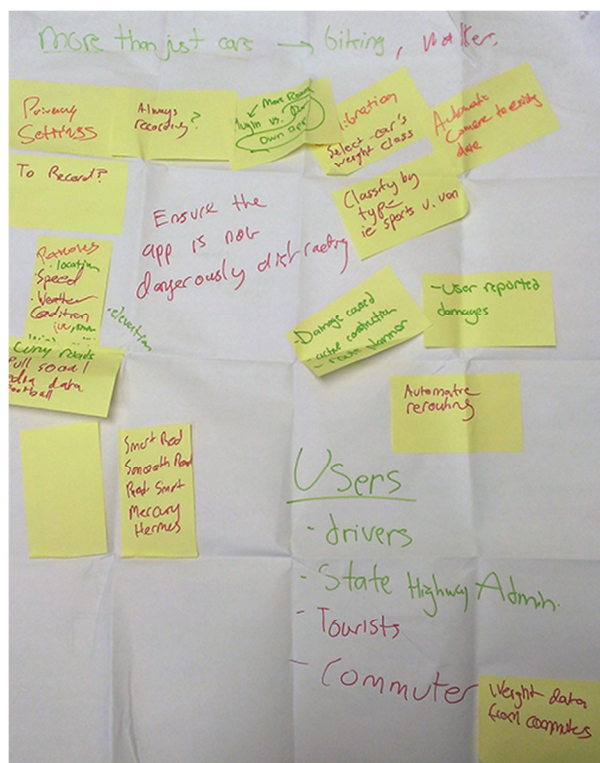 More than just cars → biking, walker.
Privacy
Settings
Always
recording?
More Room
Plugin vs. Our
Own app
libration
Select car's
weight class
Automatic
Camera
date
To Record?
Classify by
type
ie: sports v. van
Ensure the
app is not
dangerously distracting
- location
Speed
- Weather
Condition
- elevation
- Damage caused
active construction
- User reported
damages
roads
Pull social
media data
football
Automatic
rerouting
Smart Road
Smooth Road
Road Smart
Mercury
Hermes
Users
- drivers
- State Highway Admin.
- Tourists
- Commuter
Weight data
from commutes